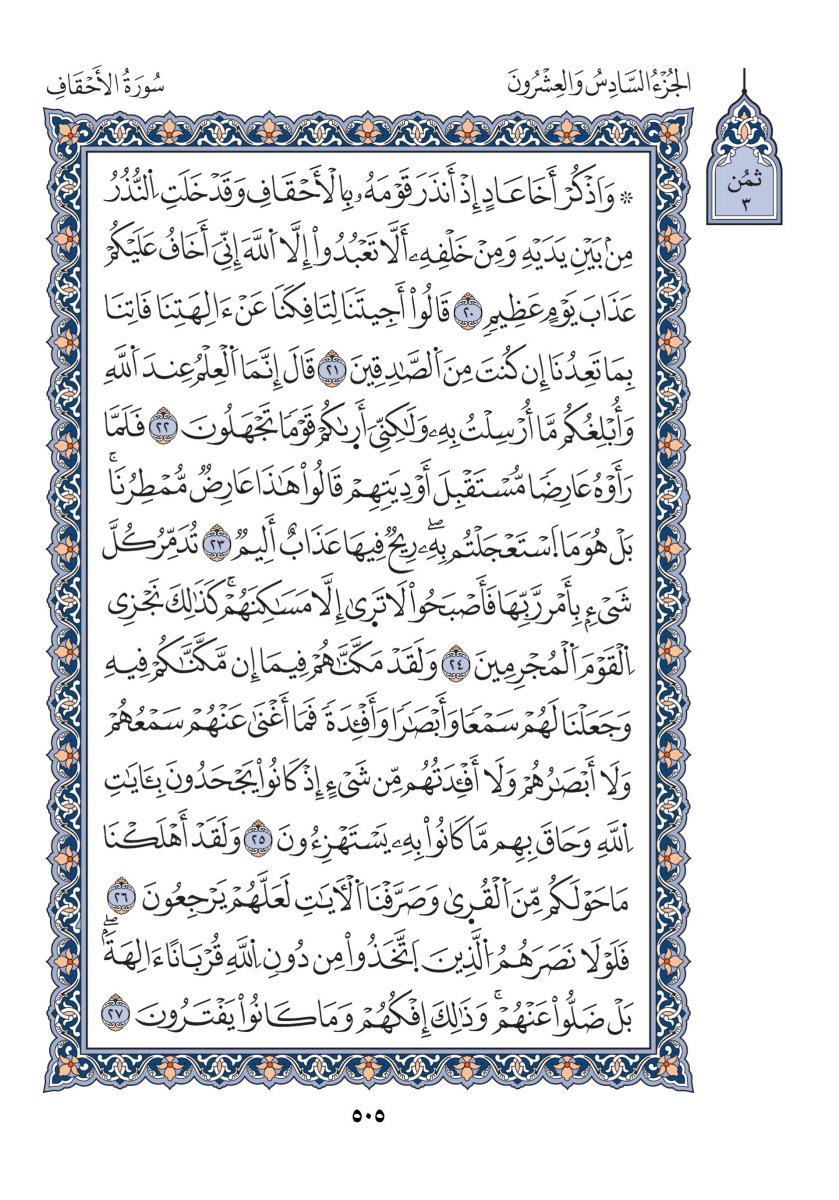 الجُزْءُ السَّادِسُ وَالعِشْرُونَ
سُورَةُ الأَحْقَافِ
ثُمُن
٣
۞ وَاَذْكُرْ أَخَا عَادٍ إِذْ أَنذَرَ قَوْمَهُۥ بِالْأَحْقَافِ وَقَدْ خَلَتِ اِلنُّذُرُ
مِنۢ بَيْنِ يَدَيْهِ وَمِنْ خَلْفِهِۦ أَلَّا تَعْبُدُوا۟ إِلَّا اَللَّهَ إِنِّيَ أَخَافُ عَلَيْكُمْ
عَذَابَ يَوْمٍ عَظِيمٍ ٢٠ قَالُوا۟ أَجِيتَنَا لِتَافِكَنَا عَنْ ءَالِهَتِنَا فَاتِنَا
بِمَا تَعِدُنَا إِن كُنتَ مِنَ اَلصَّٰدِقِينَ ٢١ قَالَ إِنَّمَا اَلْعِلْمُ عِندَ اَللَّهِ
وَأُبْلِغُكُم مَّا أُرْسِلْتُ بِهِۦ وَلَٰكِنِّيَ أَرىٰكُمْ قَوْمًا تَجْهَلُونَ ٢٢ فَلَمَّا
رَأَوْهُ عَارِضًا مُّسْتَقْبِلَ أَوْدِيَتِهِمْ قَالُوا۟ هَٰذَا عَارِضٌ مُّمْطِرُنَاۚ
بَلْ هُوَ مَا اَسْتَعْجَلْتُم بِهِۦۖ رِيحٌ فِيهَا عَذَابٌ أَلِيمٌ ٢٣ تُدَمِّرُ كُلَّ
شَيْءِۭ بِأَمْرِ رَبِّهَا فَأَصْبَحُوا۟ لَا تَرىٰ إِلَّا مَسَٰكِنَهُمْۚ كَذَٰلِكَ نَجْزِي
اِلْقَوْمَ اَلْمُجْرِمِينَ ٢٤ وَلَقَدْ مَكَّنَّٰهُمْ فِيمَا إِن مَّكَّنَّٰكُمْ فِيهِ
وَجَعَلْنَا لَهُمْ سَمْعًا وَأَبْصَٰرًا وَأَفْـِٔدَةً فَمَا أَغْنَىٰ عَنْهُمْ سَمْعُهُمْ
وَلَا أَبْصَٰرُهُمْ وَلَا أَفْـِٔدَتُهُم مِّن شَيْءٍ إِذْ كَانُوا۟ يَجْحَدُونَ بِـَٔايَٰتِ
اِللَّهِ وَحَاقَ بِهِم مَّا كَانُوا۟ بِهِۦ يَسْتَهْزِءُونَ ٢٥ وَلَقَدْ أَهْلَكْنَا
مَا حَوْلَكُم مِّنَ اَلْقُرىٰ وَصَرَّفْنَا اَلْأٓيَٰتِ لَعَلَّهُمْ يَرْجِعُونَ ٢٦
فَلَوْلَا نَصَرَهُمُ اُلَّذِينَ اَتَّخَذُوا۟ مِن دُونِ اِللَّهِ قُرْبَانًا ءَالِهَةًۖ
بَلْ ضَلُّوا۟ عَنْهُمْۚ وَذَٰلِكَ إِفْكُهُمْ وَمَا كَانُوا۟ يَفْتَرُونَ ٢٧
٥٠٥